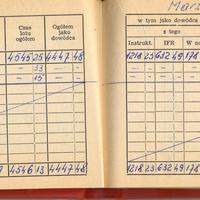 Marz
Czas
lotu
ogółem
Ogółem
jako
dowódca
w tym jako dowódca
z tego
Instrukt. IFR W no
4545 25 4447 48 1218 23 632 49 178
– 33 – – – – – – –
– 15 – – – – – – –
4546 13 4447 48 1218 23 632 49 178